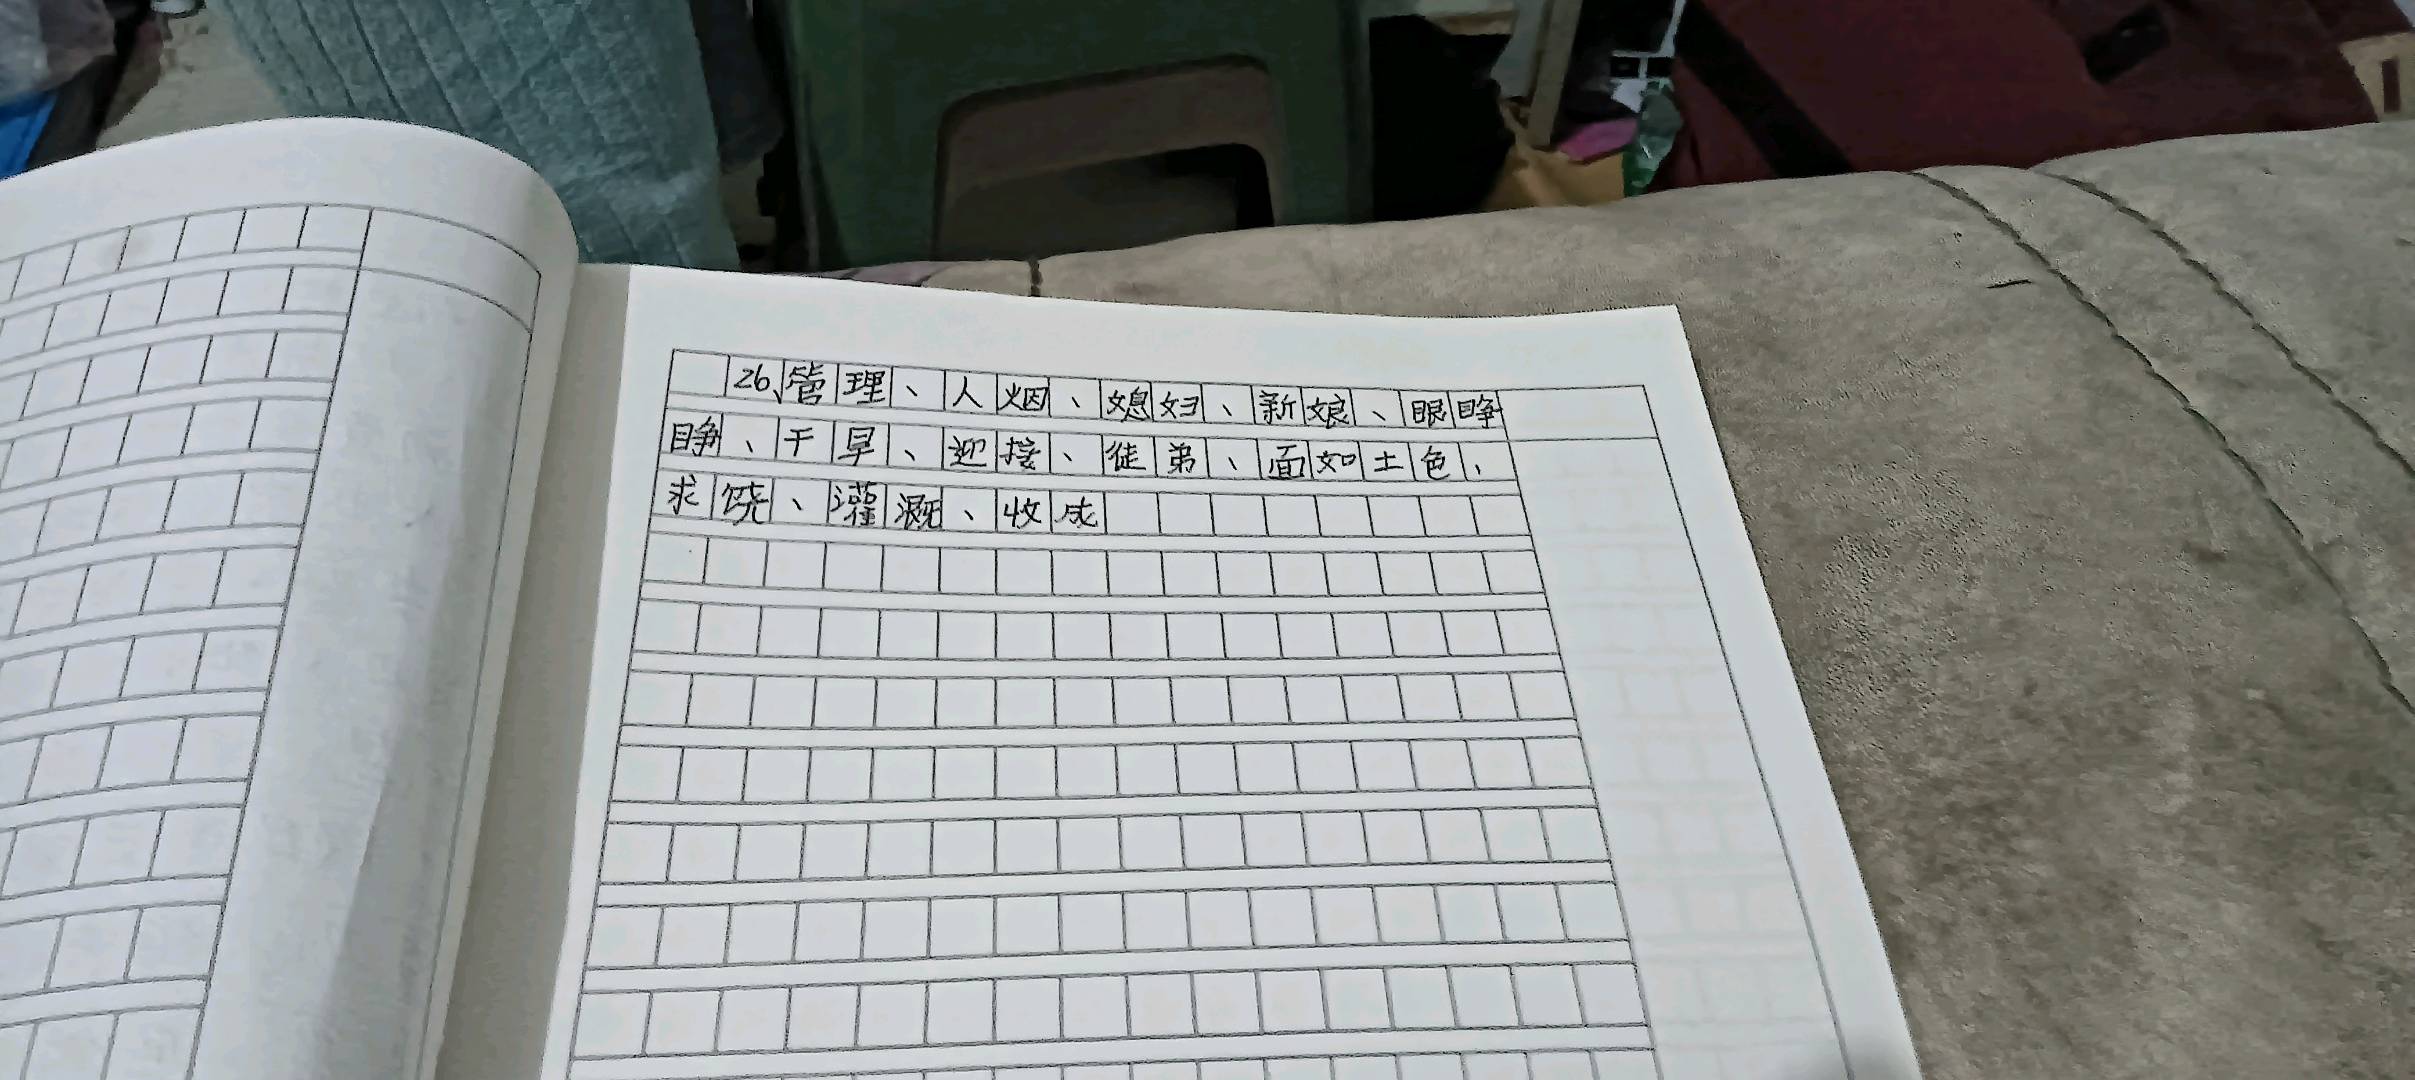 26、管理、人烟、媳妇、新娘、眼睁
睁、干旱、迎接、徒弟、面如土色、
求饶、灌溉、收成